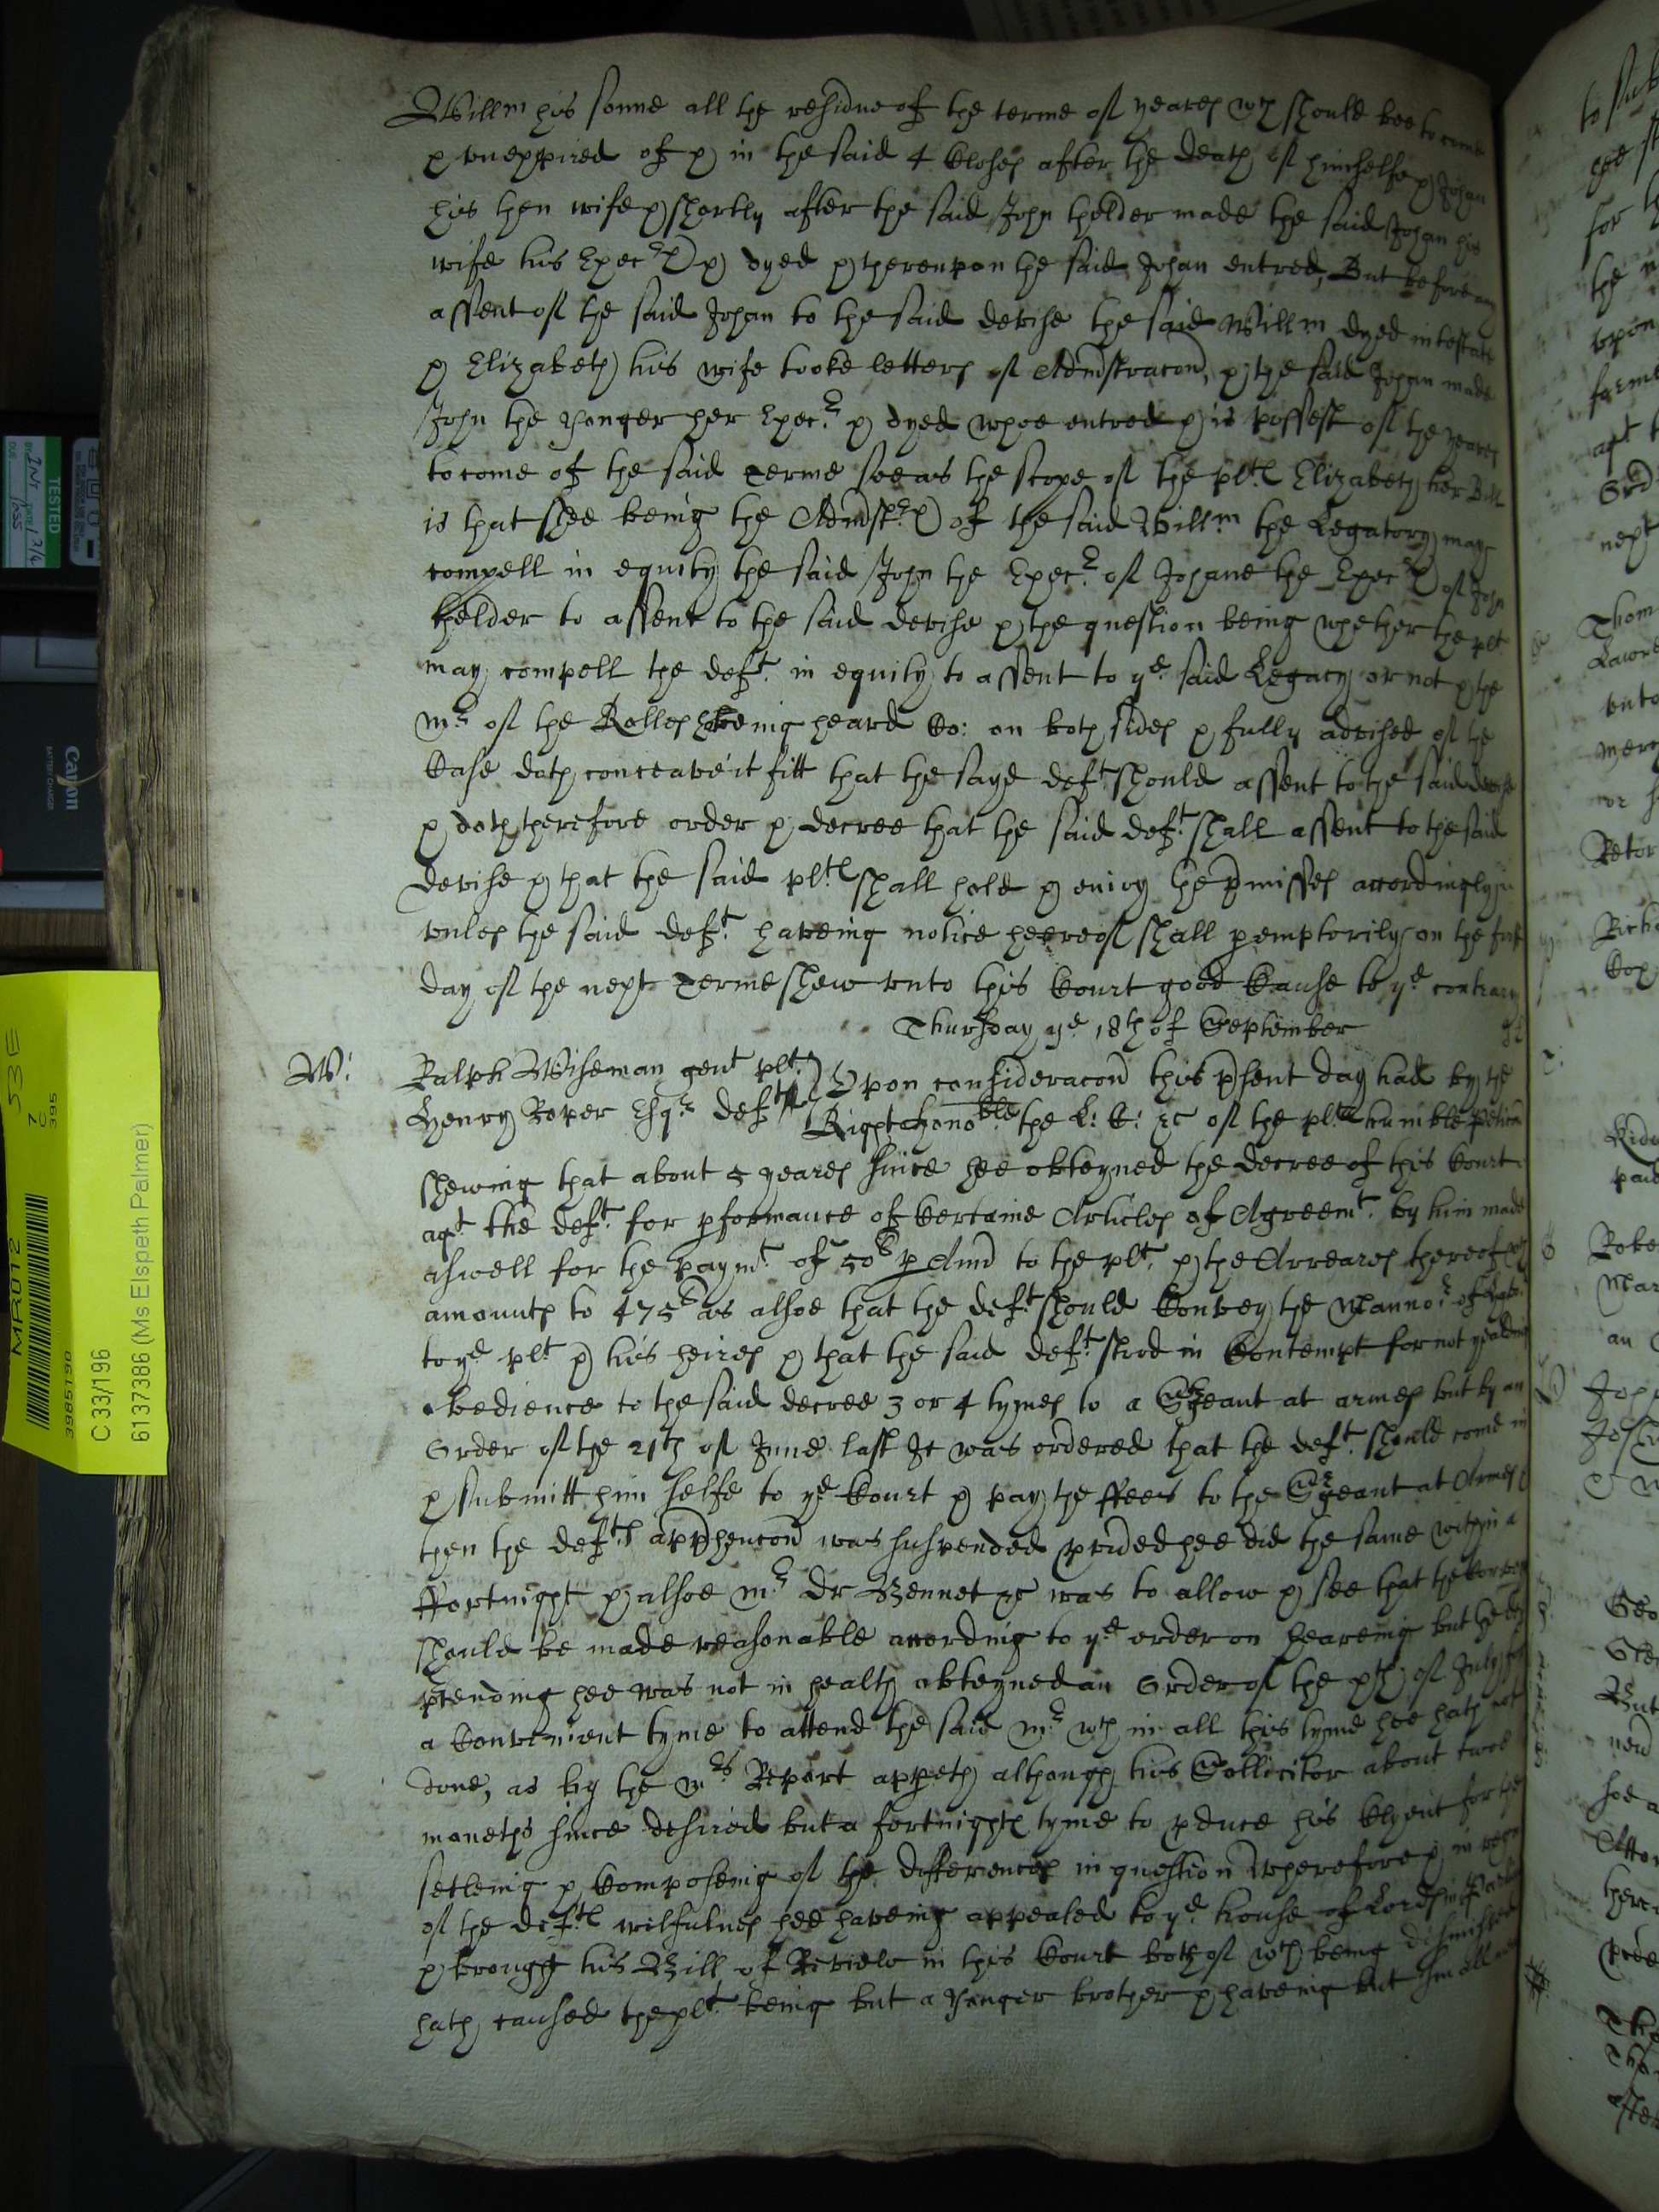 Willm his sonne all the residue of the terme of yeares wch should bee to come
& vnexpired of & in the said 4 Closes after the death of himselfe & Johan
his then wife & shortly after the said John thelder made the said Johan his
wife his Execr & dyed & therevpon the said Johan entred, But before any
assent of the said Johan to the said devise the said Willm dyed intestate
& Elizabeth his wife tooke letters of Admstracon, & the said Johan made
John the Yonger her Execr. & dyed whoe entred & is possest of the yeares
to come of the said Terme soe as the scope of the plts Elizabeth her Bill
is that shee being the Admstr of the said Willm the Legatory may
compell in equity the said John the Execr. of Johane the Execr of John
thelder to assent to the said devise & the question being whether the plt
may compell the deft. in equity to assent to ye said Legacy or not & the
mr of the Rolles haveing heard Co: on both sides & fully advised of the
Case doth conceave it fitt that the sayd deft should assent to the said devise
& doth therefore order & decree that the said deft. shall assent to the said
devise & that the said plts shall hold & enioy the pmisses accordingly
vnles the said deft. haveing notice heereof shall pemptorily on the first
day of the next Terme shew vnto this Court good Cause to ye contrary
Thursday ye 18th of September
W:
Ralph Wiseman gent plt.
Henry Roper Esqr deft
Vpon consideracon this psent day had by the
Right Honoble. the L: C: &c of the plts humble peticon
shewing that about 5 yeares since hee obteyned the decree of this Court
agt the deft. for pformance of Certaine Articles of Agreemt. by him made
aswell for the paymt. of 50l p Ann to the plt. & the Arreares thereof wch
amounts to 475l as alsoe that the deft should Convey the Mannor. of
to ye plt. & his heires & that the said deft. stood in Contempt for not yealding
obedience to the said decree 3 or 4 tymes to a Sergeant at armes but by an
Order of the 21th of June last It was ordered that the deft. should come in
& submitt him selfe to ye Court & pay the ffees to the Sergeant at Armes
then the defts apphencon was suspended pvided hee did the same within a
ffortnight & alsoe mr. Dr Bennet &c was to allow & see that the
should be made reasonable according to ye order on heareing but
ptending hee was not in health obteyned an Order of the xth of July for
a Convenient tyme to attend the said mr. wch in all this tyme hee hath not
done, as by the mrs. Report appeth although his Sollicitor about twoe
moneths since desired but a fortnights tyme to pduce his Clyent for the
setleing & Composeing of the differences in question Wherefore & in
of the defts wilfulnes hee haveing appealed to ye house of Lords in
& brought his Bill of Review in this Court both of wch being dismissed
hath caused the plt. being but a Yonger brother & haveing but small
TESTED
BY INT DATE 12/4
DUE 1055
Canon
BATTERY CHARGER
53E
MR012
7
C
395
3985190
C 33/196
6137386 (Ms Elspeth Palmer)